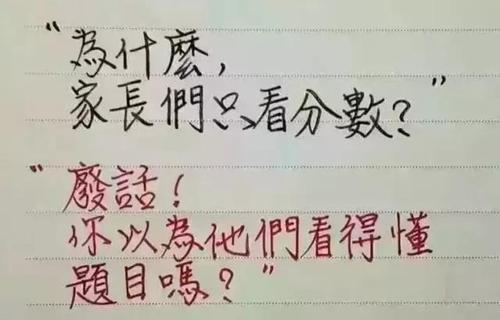 "為什麼,
家長們只看分數?"
"廢話!
你以為他們看得懂
題目嗎?"